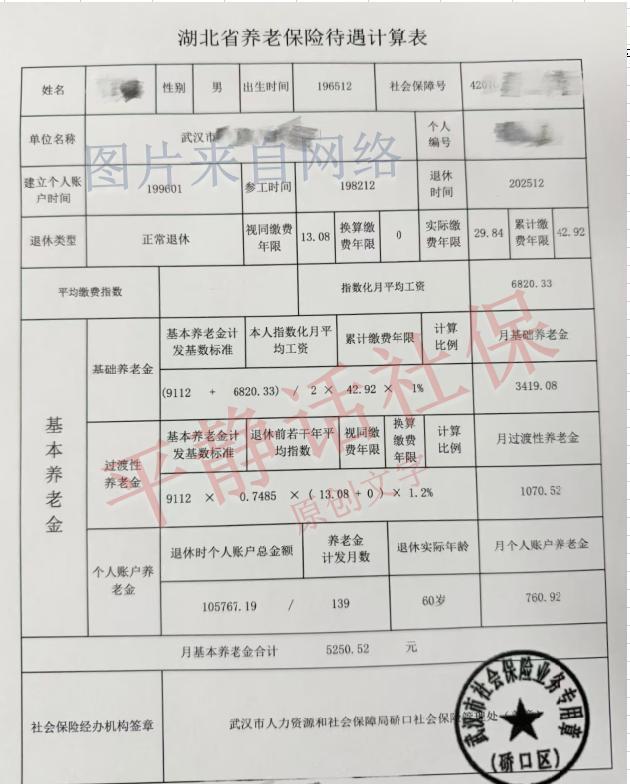 湖北省养老保险待遇计算表
姓名 性别 男 出生时间 196512 社会保障号
单位名称 武汉市 个人编号
图片来自网络
建立个人账户时间 199601 参工时间 198212 退休时间 202512
退休类型 正常退休 视同缴费年限 13.08 换算缴费年限 0 实际缴费年限 29.84 累计缴费年限 42.92
平均缴费指数 指数化月平均工资 6820.33
基本养老金
基础养老金 基本养老金计发基数标准 本人指数化月平均工资 累计缴费年限 计算比例 月基础养老金
(9112 + 6820.33) / 2 × 42.92 × 1% 3419.08
过渡性养老金 基本养老金计发基数标准 退休前若干年平均指数 视同缴费年限 换算缴费年限 计算比例 月过渡性养老金
9112 × 0.7485 × ( 13.08 + 0 ) × 1.2% 1070.52
个人账户养老金 退休时个人账户总金额 养老金计发月数 退休实际年龄 月个人账户养老金
105767.19 / 139 60岁 760.92
月基本养老金合计 5250.52 元
社会保险经办机构签章 武汉市人力资源和社会保障局硚口社会保险管理处
武汉市社会保险业务专用章
(硚口区)
平静话社保
原创文字